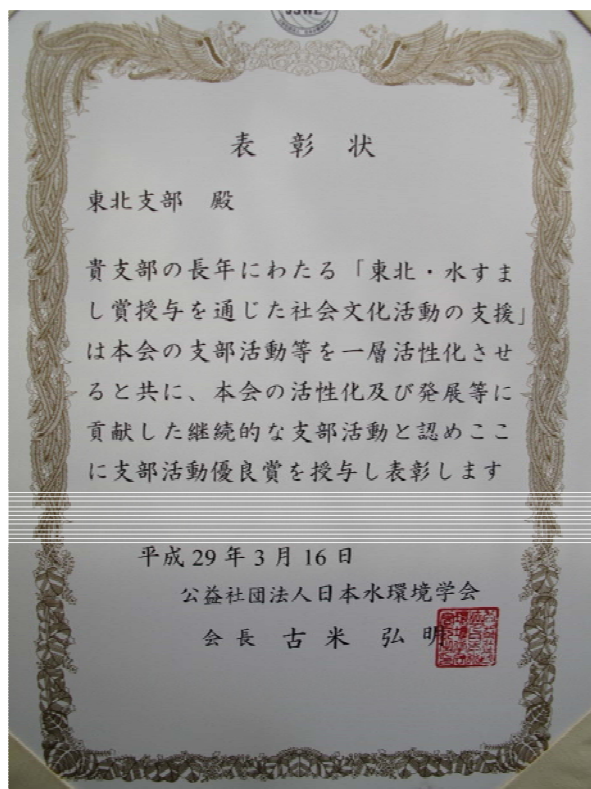 表彰状
東北支部 殿
貴支部の長年にわたる「東北・水すま
し賞授与を通じた社会文化活動の支援」
は本会の支部活動等を一層活性化させ
ると共に、本会の活性化及び発展等に
貢献した継続的な支部活動と認めここ
に支部活動優良賞を授与し表彰します
平成29年3月16日
公益社団法人日本水環境学会
会長 古米 弘明